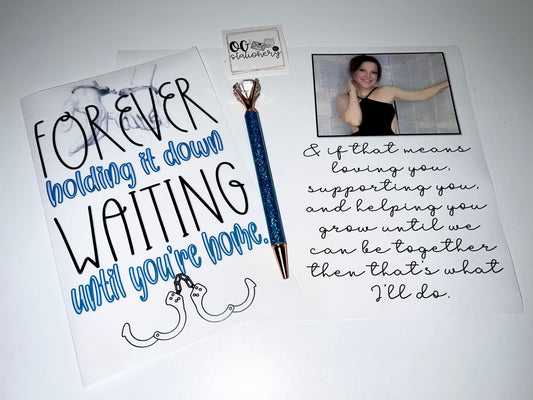 OG
stationery
FOREVER
holding it down
WAITING
until you're home.
& if that means
loving you,
supporting you,
and helping you
grow until we
can be together
then that's what
I'll do.